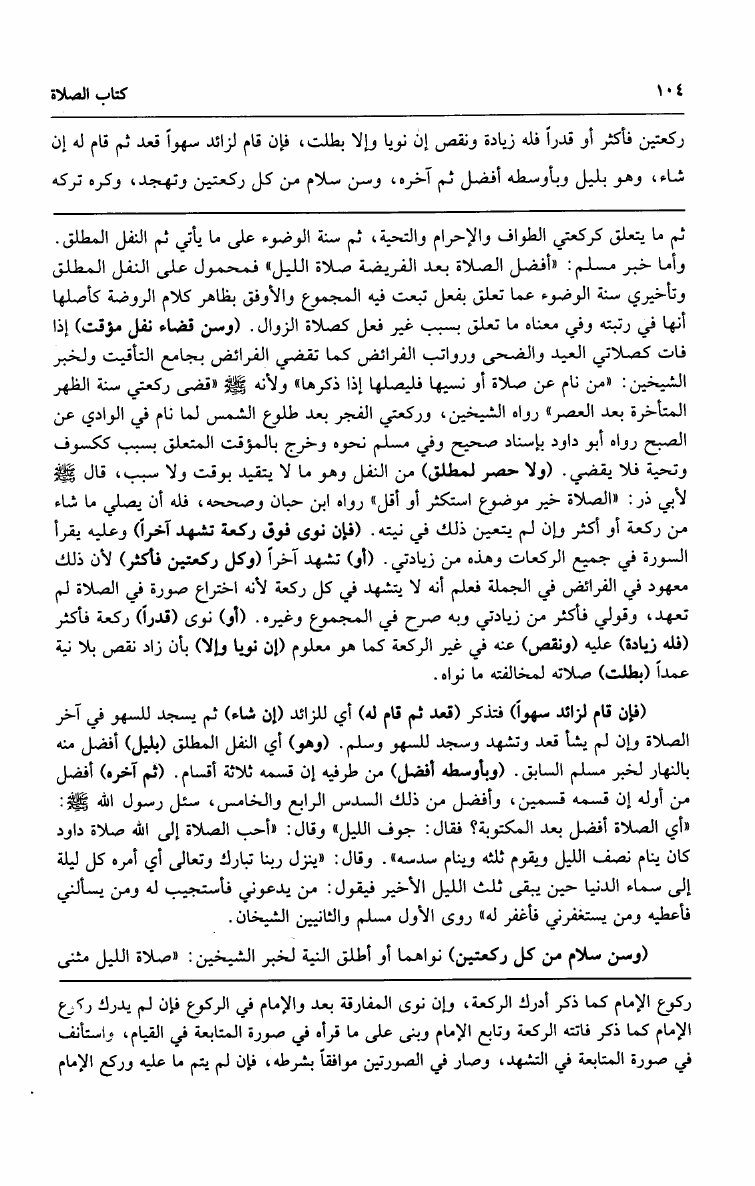 ١٠٤
كتاب الصلاة
ركعتين فأكثر أو قدراً فله زيادة ونقص إن نويا وإلا بطلت، فإن قام لزائد سهواً قعد ثم قام له إن
شاء، وهو بليل وبأوسطه أفضل ثم آخره، وسن سلام من كل ركعتين وتهجد، وكره تركه
ثم ما يتعلق كركعتي الطواف والإحرام والتحية، ثم سنة الوضوء على ما يأتي ثم النفل المطلق.
وأما خبر مسلم: «أفضل الصلاة بعد الفريضة صلاة الليل» فمحمول على النفل المطلق
وتأخيري سنة الوضوء عما تعلق بفعل تبعت فيه المجموع والأوفق بظاهر كلام الروضة كأصلها
أنها في رتبته وفي معناه ما تعلق بسبب غير فعل كصلاة الزوال. (وسن قضاء نفل مؤقت) إذا
فات كصلاتي العيد والضحى ورواتب الفرائض كما تقضي الفرائض بجامع التأقيت ولخبر
الشيخين: «من نام عن صلاة أو نسيها فليصلها إذا ذكرها» ولأنه ﷺ «قضى ركعتي سنة الظهر
المتأخرة بعد العصر» رواه الشيخين، وركعتي الفجر بعد طلوع الشمس لما نام في الوادي عن
الصبح رواه أبو داود بإسناد صحيح وفي مسلم نحوه وخرج بالمؤقت المتعلق بسبب ككسوف
وتحية فلا يقضي. (ولا حصر لمطلق) من النفل وهو ما لا يتقيد بوقت ولا سبب، قال ﷺ
لأبي ذر: «الصلاة خير موضوع استكثر أو أقل» رواه ابن حبان وصححه، فله أن يصلي ما شاء
من ركعة أو أكثر وإن لم يتعين ذلك في نيته. (فإن نوى فوق ركعة تشهد آخراً) وعليه يقرأ
السورة في جميع الركعات وهذه من زيادتي. (أو) تشهد آخراً (وكل ركعتين فأكثر) لأن ذلك
معهود في الفرائض في الجملة فعلم أنه لا يتشهد في كل ركعة لأنه اختراع صورة في الصلاة لم
تعهد، وقولي فأكثر من زيادتي وبه صرح في المجموع وغيره. (أو) نوى (قدراً) ركعة فأكثر
(فله زيادة) عليه (ونقص) عنه في غير الركعة كما هو معلوم (إن نويا وإلا) بأن زاد نقص بلا نية
عمداً (بطلت) صلاته لمخالفته ما نواه.
(فإن قام لزائد سهواً) فتذكر (قعد ثم قام له) أي للزائد (إن شاء) ثم يسجد للسهو في آخر
الصلاة وإن لم يشأ قعد وتشهد وسجد للسهو وسلم. (وهو) أي النفل المطلق (بليل) أفضل منه
بالنهار لخبر مسلم السابق. (وبأوسطه أفضل) من طرفيه إن قسمه ثلاثة أقسام. (ثم آخره) أفضل
من أوله إن قسمه قسمين، وأفضل من ذلك السدس الرابع والخامس، سئل رسول الله ﷺ:
«أي الصلاة أفضل بعد المكتوبة؟ فقال: جوف الليل» وقال: «أحب الصلاة إلى الله صلاة داود
كان ينام نصف الليل ويقوم ثلثه وينام سدسه». وقال: «ينزل ربنا تبارك وتعالى أي أمره كل ليلة
إلى سماء الدنيا حين يبقى ثلث الليل الأخير فيقول: من يدعوني فأستجيب له ومن يسألني
فأعطيه ومن يستغفرني فأغفر له» روى الأول مسلم والثانيين الشيخان.
(وسن سلام من كل ركعتين) نواهما أو أطلق النية لخبر الشيخين: «صلاة الليل مثنى
ركوع الإمام كما ذكر أدرك الركعة، وإن نوى المفارقة بعد والإمام في الركوع فإن لم يدرك ركوع
الإمام كما ذكر فاتته الركعة وتابع الإمام وبنى على ما قرأه في صورة المتابعة في القيام، واستأنف
في صورة المتابعة في التشهد، وصار في الصورتين موافقاً بشرطه، فإن لم يتم ما عليه وركع الإمام